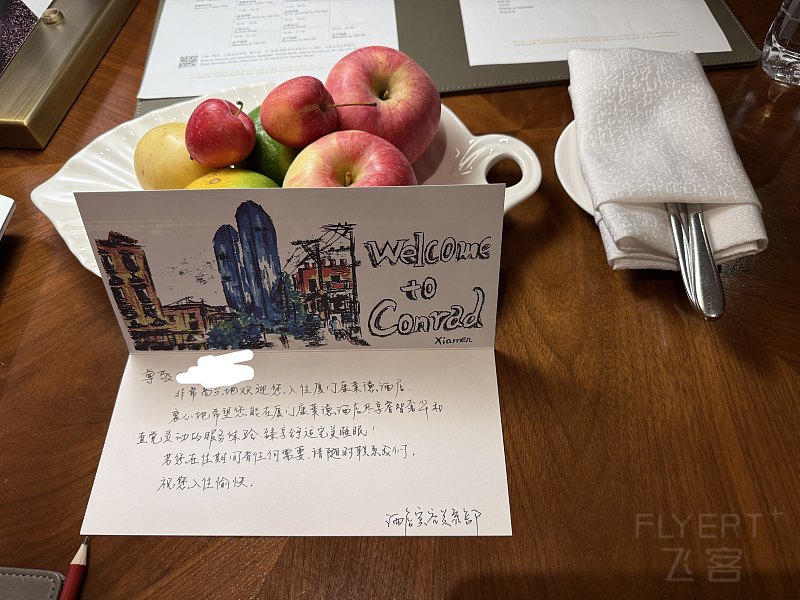 Welcome
to
Conrad
Xiamen
尊敬
非常高兴地欢迎您入住厦门康莱德酒店.
衷心地希望您能在厦门康莱德酒店尽享睿智奢华和
直觉灵动的服务体验, 臻享舒适完美睡眠!
若您在住期间有任何需要, 请随时联系我们.
祝您入住愉快.
酒店宾客关系部
FLYERT+
飞客